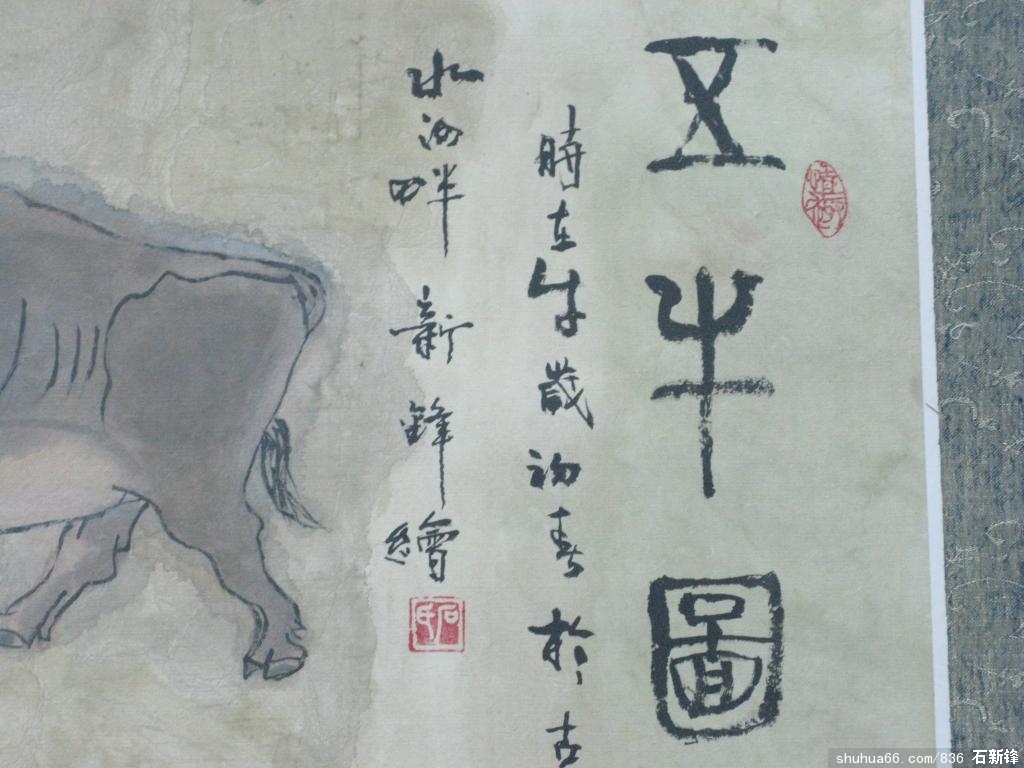 五牛圖
時在牛歲初春於古
水河畔 新鋒繪
石氏
shuhua66.com/836 石新锋